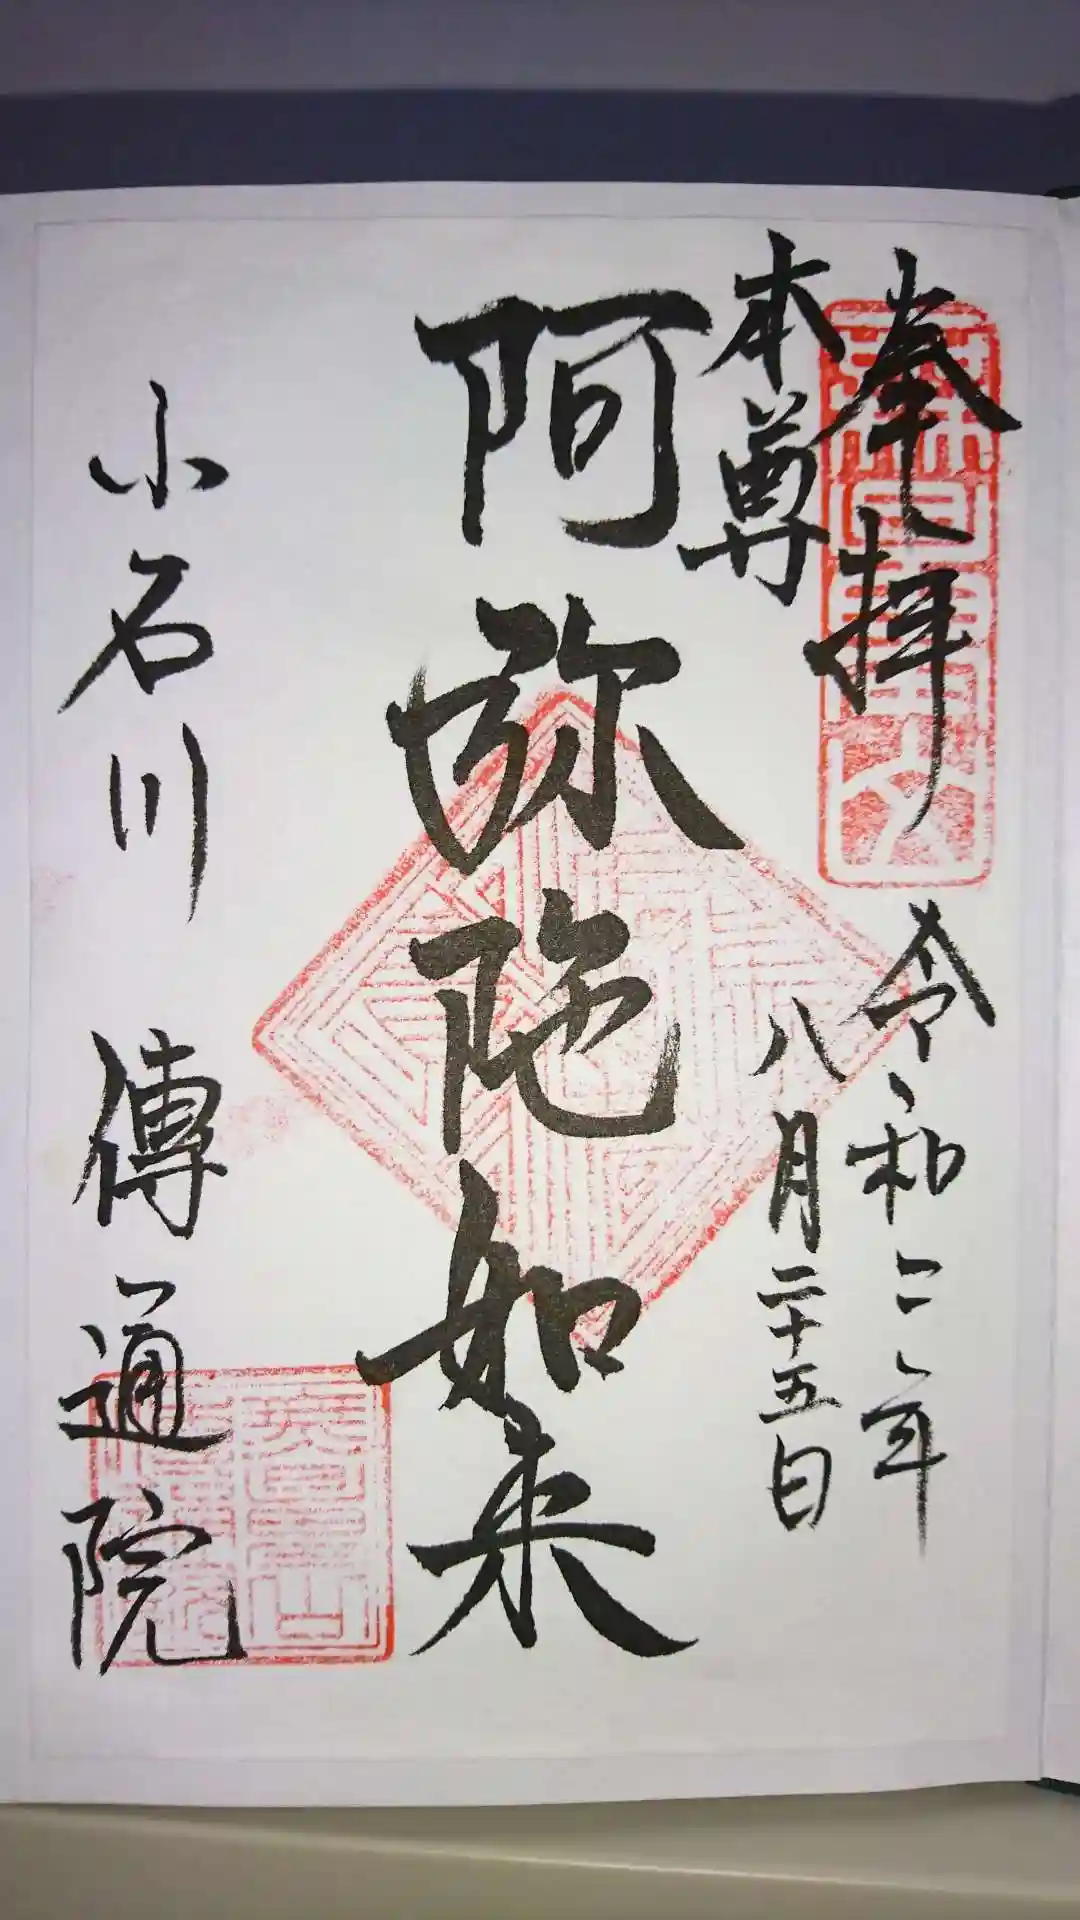 奉拝
令和二年
八月二十五日
本尊
阿弥陀如来
小石川 傳通院